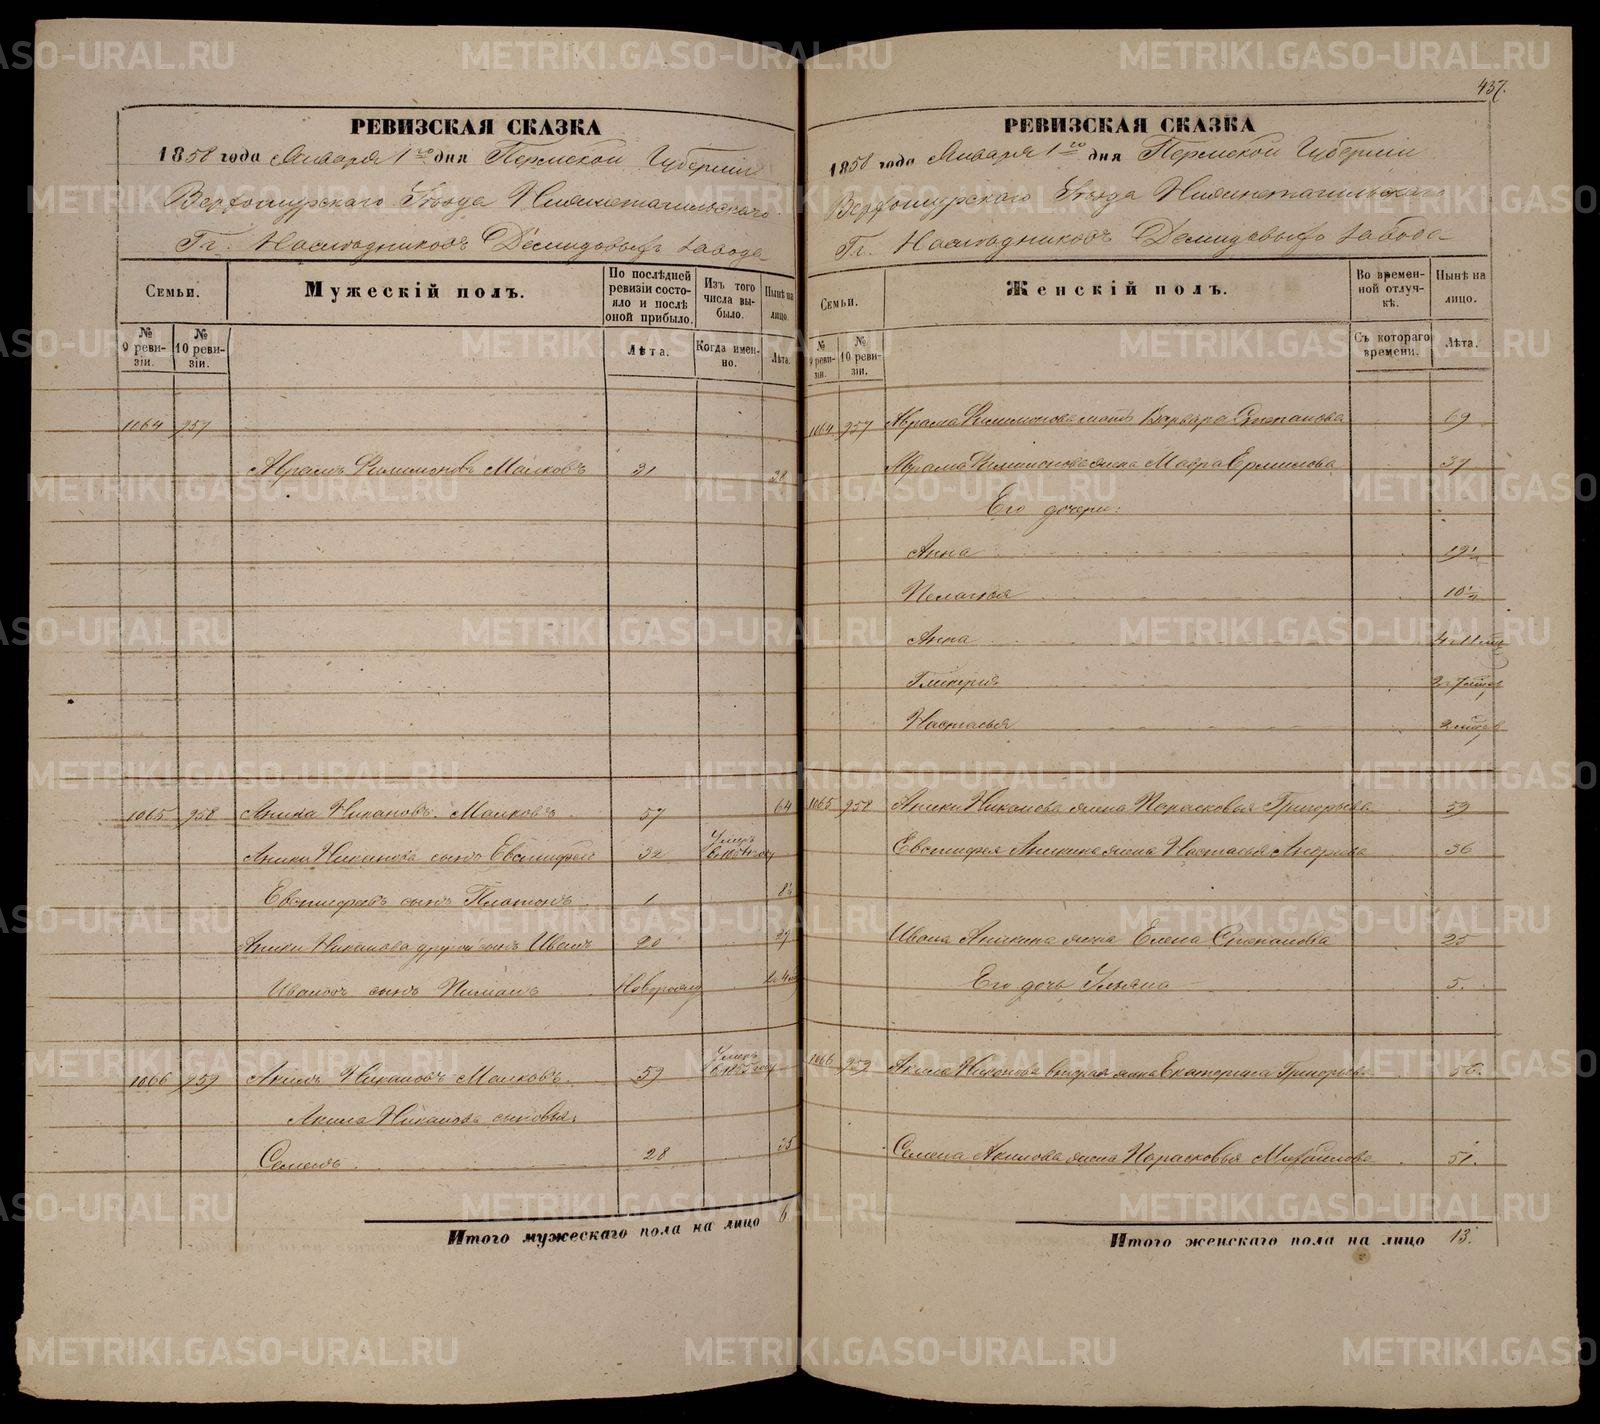 437.
РЕВИЗСКАЯ СКАЗКА
1858 года Января 1го дня Пермской Губернии
Верхотурского Уезда Нижнетагильскаго
Гг. Наследниковъ Демидовыхъ завода
Семьи.
Мужескій полъ.
По послѣдней ревизіи состояло и послѣ оной прибыло.
Изъ того числа выбыло.
Нынѣ на лицо.
№ 9 ревизіи.
№ 10 ревизіи.
Лѣта.
Когда именно.
Лѣта.
1064 957
Аврамъ Филимоновъ Малковъ 31
1065 958 Аника Никановъ Малковъ 57 64
АникиНиканова сынъ Евстифей 32 Умеръ
Евстифеевъ сынъ Платонъ 1 8½
Аники Никанова другой сынъ Иванъ 20 27
Ивановъ сынъ Пиманъ Новорожд
1066 959 Акимъ Никановъ Малковъ 59 Умеръ
Акима Никанова сыновья:
Семенъ 28 35
Итого мужескаго пола на лицо 6
РЕВИЗСКАЯ СКАЗКА
1858 года Января 1го дня Пермской Губерніи
Верхотурскаго Уезда Нижнетагильскаго
Гг. Наследниковъ Демидовыхъ завода
Семьи.
Женскій полъ.
Во временной отлучкѣ.
Нынѣ на лицо.
№ 9 ревизіи.
№ 10 ревизіи.
Съ котораго времени.
Лѣта.
1064 957 Аврама Филимонова мать Варвара Степанова 69
Аврама Филимонова жена Мавра Ермилова 37
Его дочери:
Анна 19½
Пелагея 10½
Анна
Гликерия
Настасья
1065 958 Аники Никанова жена Парасковья Григорьева 59
Евстифея Аникина жена Настасья Андреева 36
Ивана Аникина жена Елена Степанова 25
Его дочь Ульяна 5.
1066 959 Акима Никанова вторая жена Екатерина Григорьева
Семена Акимова жена Парасковья Михайлова
Итого женскаго пола на лицо 13.
METRIKI.GASO-URAL.RU